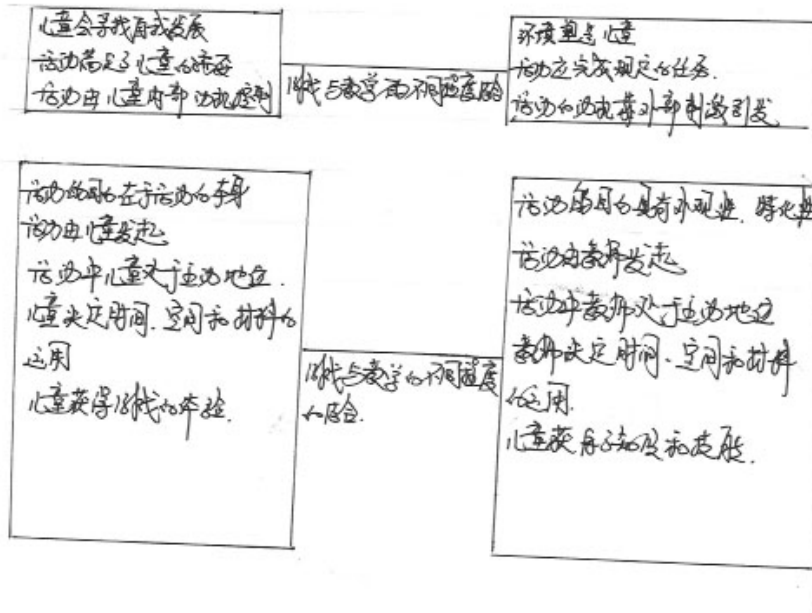 儿童会寻找自我发展
活动满足了儿童的需要
活动由儿童内部动机控制
游戏与教学的不同程度结合
环境塑造儿童
活动应完成规定的任务.
活动的动机靠外部刺激引发
活动的目的在于活动的本身
活动由儿童发起
活动中儿童处于主动地位.
儿童决定时间、空间和材料的
运用
儿童获得游戏的体验.
游戏与教学的不同程度
的结合.
活动的目的具有外观性、特化性
活动由教师发起
活动中教师处于主动地位
教师决定时间、空间和材料
的运用.
儿童获得知识和技能.